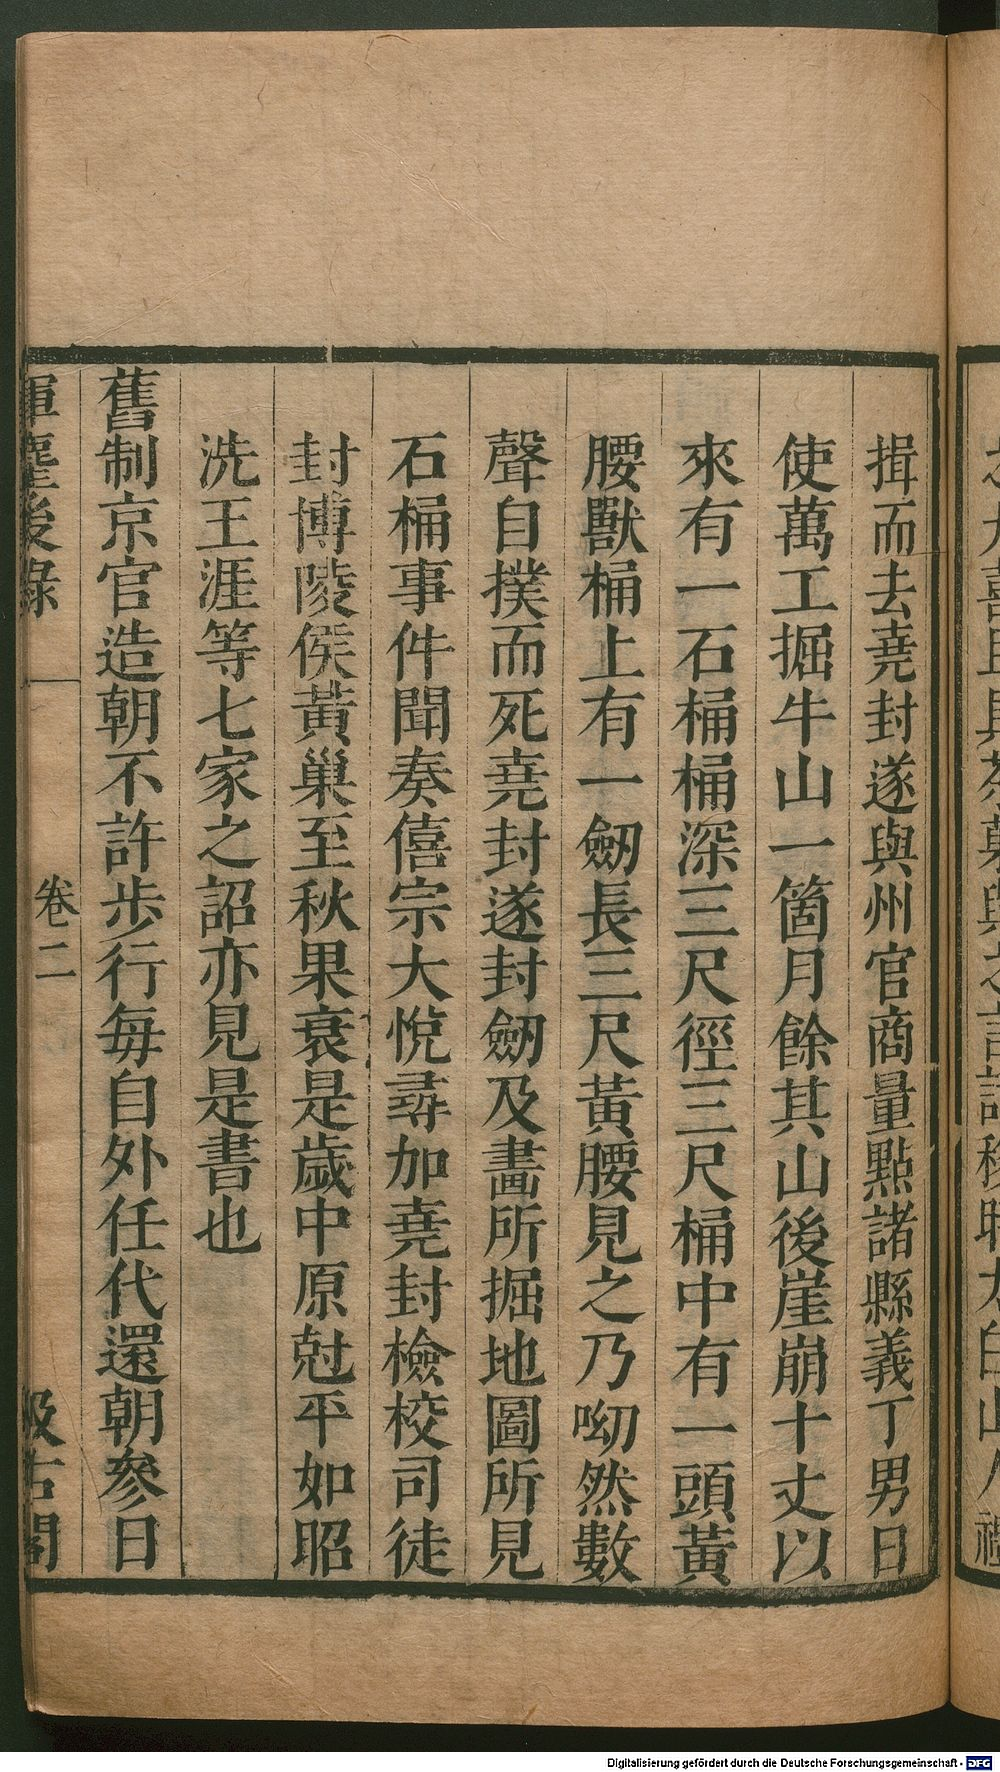 揖而去堯封遂與州官商量點諸縣義丁男日
使萬工掘牛山一箇月餘其山後崖崩十丈以
來有一石桶桶深三尺徑三尺桶中有一頭黃
腰獸桶上有一劒長三尺黃腰見之乃呦然數
聲自撲而死堯封遂封劒及畫所掘地圖所見
石桶事件聞奏僖宗大悅尋加堯封檢校司徒
封博陵侯黃巢至秋果衰是歲中原尅平如昭
洗王涯等七家之詔亦見是書也
舊制京官造朝不許步行每自外任代還朝參日
揮麈後錄 卷二 汲古閣
Digitalisierung gefördert durch die Deutsche Forschungsgemeinschaft - DFG